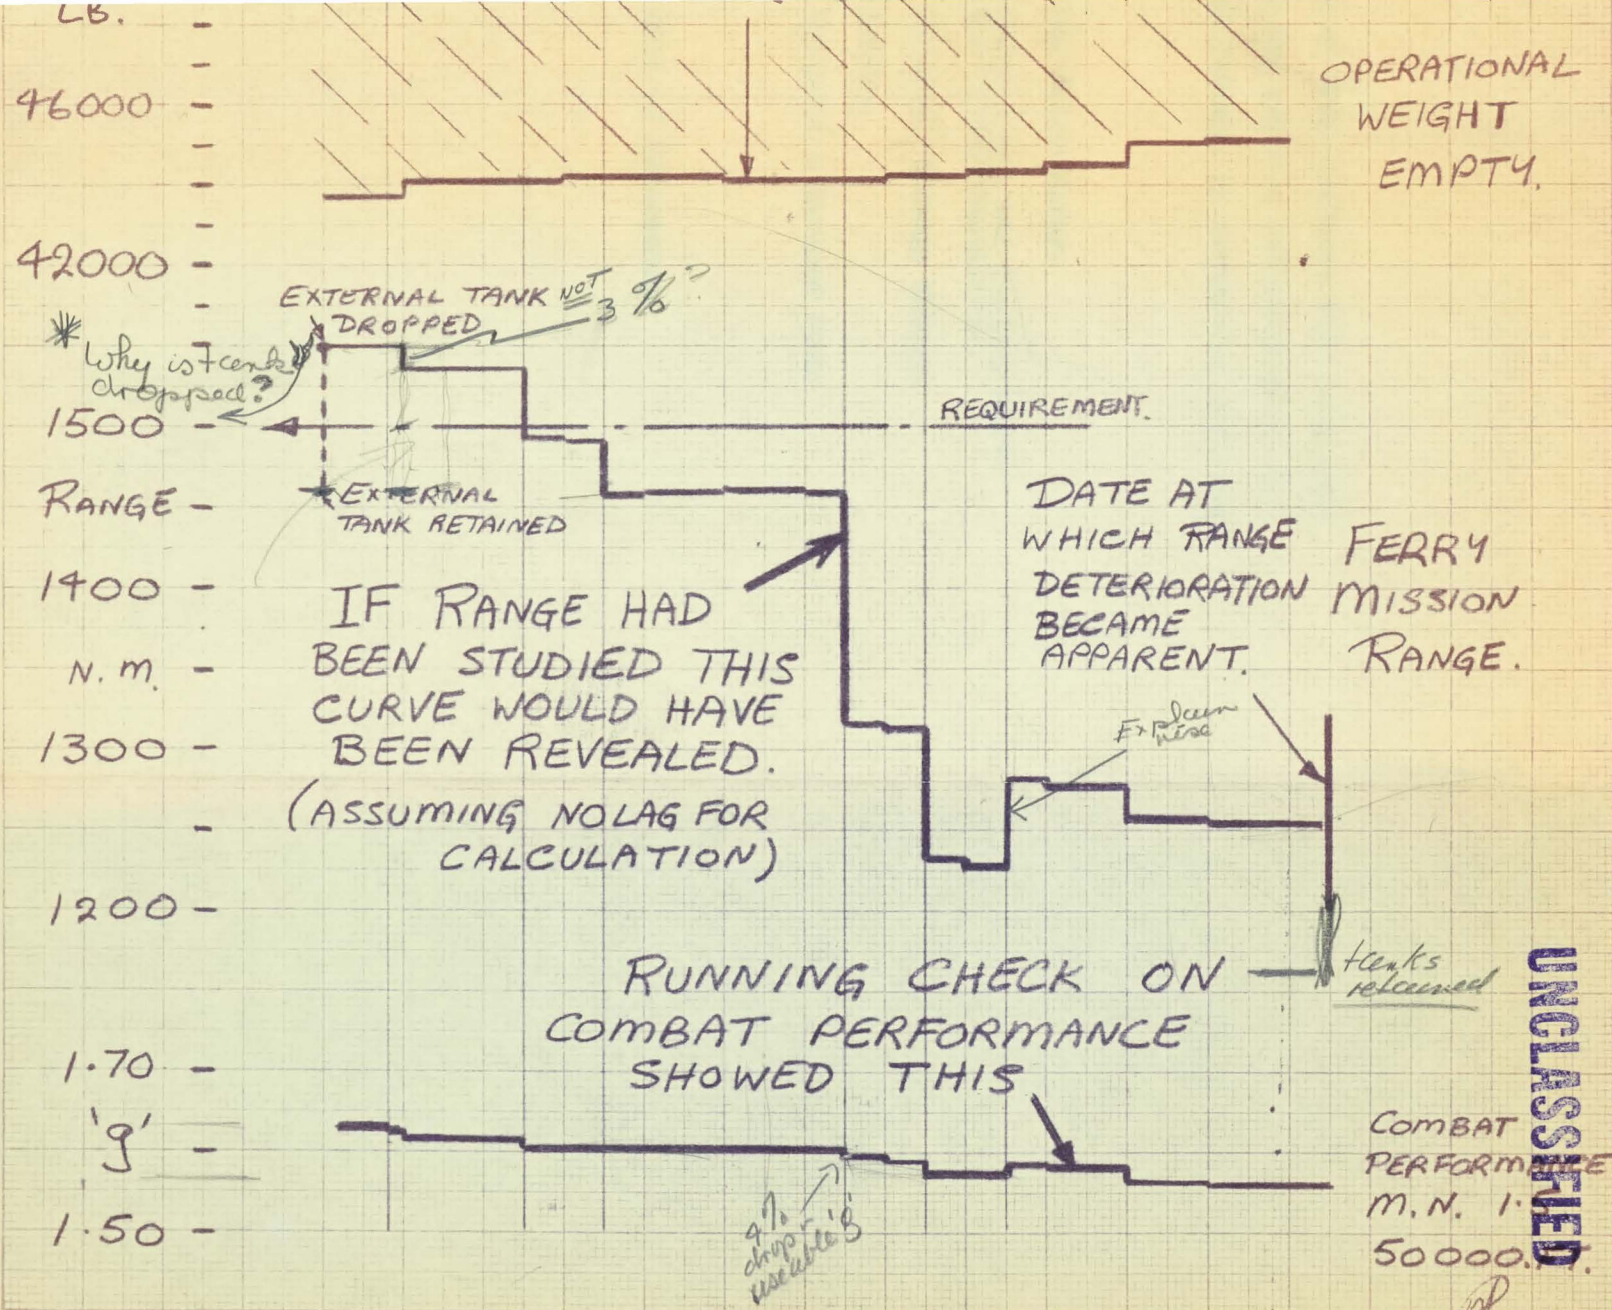 LB.
46000
42000
OPERATIONAL
WEIGHT
EMPTY.
EXTERNAL TANK NOT
DROPPED
3 %?
* Why is tank
dropped?
1500
REQUIREMENT.
RANGE
EXTERNAL
TANK RETAINED
1400
N.M.
1300
1200
IF RANGE HAD
BEEN STUDIED THIS
CURVE WOULD HAVE
BEEN REVEALED.
(ASSUMING NO LAG FOR
CALCULATION)
DATE AT
WHICH RANGE
DETERIORATION
BECAME
APPARENT.
FERRY
MISSION
RANGE.
Explain
rise
RUNNING CHECK ON
COMBAT PERFORMANCE
SHOWED THIS
tanks
retained
1.70
'g'
1.50
4%
drop
useable 'g'
COMBAT
PERFORMANCE
M.N. 1.
50000
UNCLASSIFIED